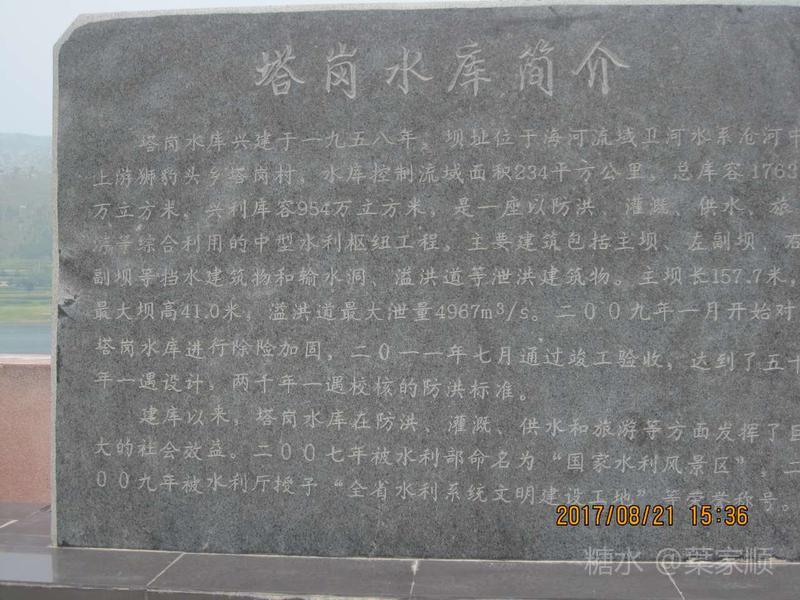 塔岗水库简介
塔岗水库兴建于一九五八年。坝址位于海河流域卫河水系沧河中
上游狮豹头乡塔岗村。水库控制流域面积234平方公里。总库容1763
万立方米，兴利库容954万立方米，是一座以防洪、灌溉、供水、旅
游等综合利用的中型水利枢纽工程。主要建筑包括主坝、左副坝、右
副坝等挡水建筑物和输水洞、溢洪道等泄洪建筑物。主坝长157.7米，
最大坝高41.0米，溢洪道最大泄量4967m³/s。二〇〇九年一月开始对
塔岗水库进行除险加固，二〇一一年七月通过竣工验收，达到了五十
年一遇设计，两千年一遇校核的防洪标准。
建库以来，塔岗水库在防洪、灌溉、供水和旅游等方面发挥了巨
大的社会效益。二〇〇七年被水利部命名为“国家水利风景区”，二
〇〇九年被水利厅授予“全省水利系统文明建设工地”等荣誉称号。
2017/08/21 15:36
糖水 @葉家顺